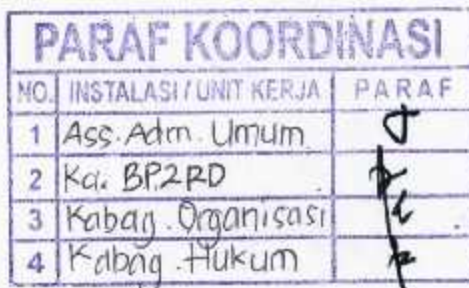 PARAF KOORDINASI
NO. INSTALASI / UNIT KERJA PARAF
1 Ass. Adm. Umum
2 Ka. BP2RD
3 Kabag. Organisasi
4 Kabag. Hukum